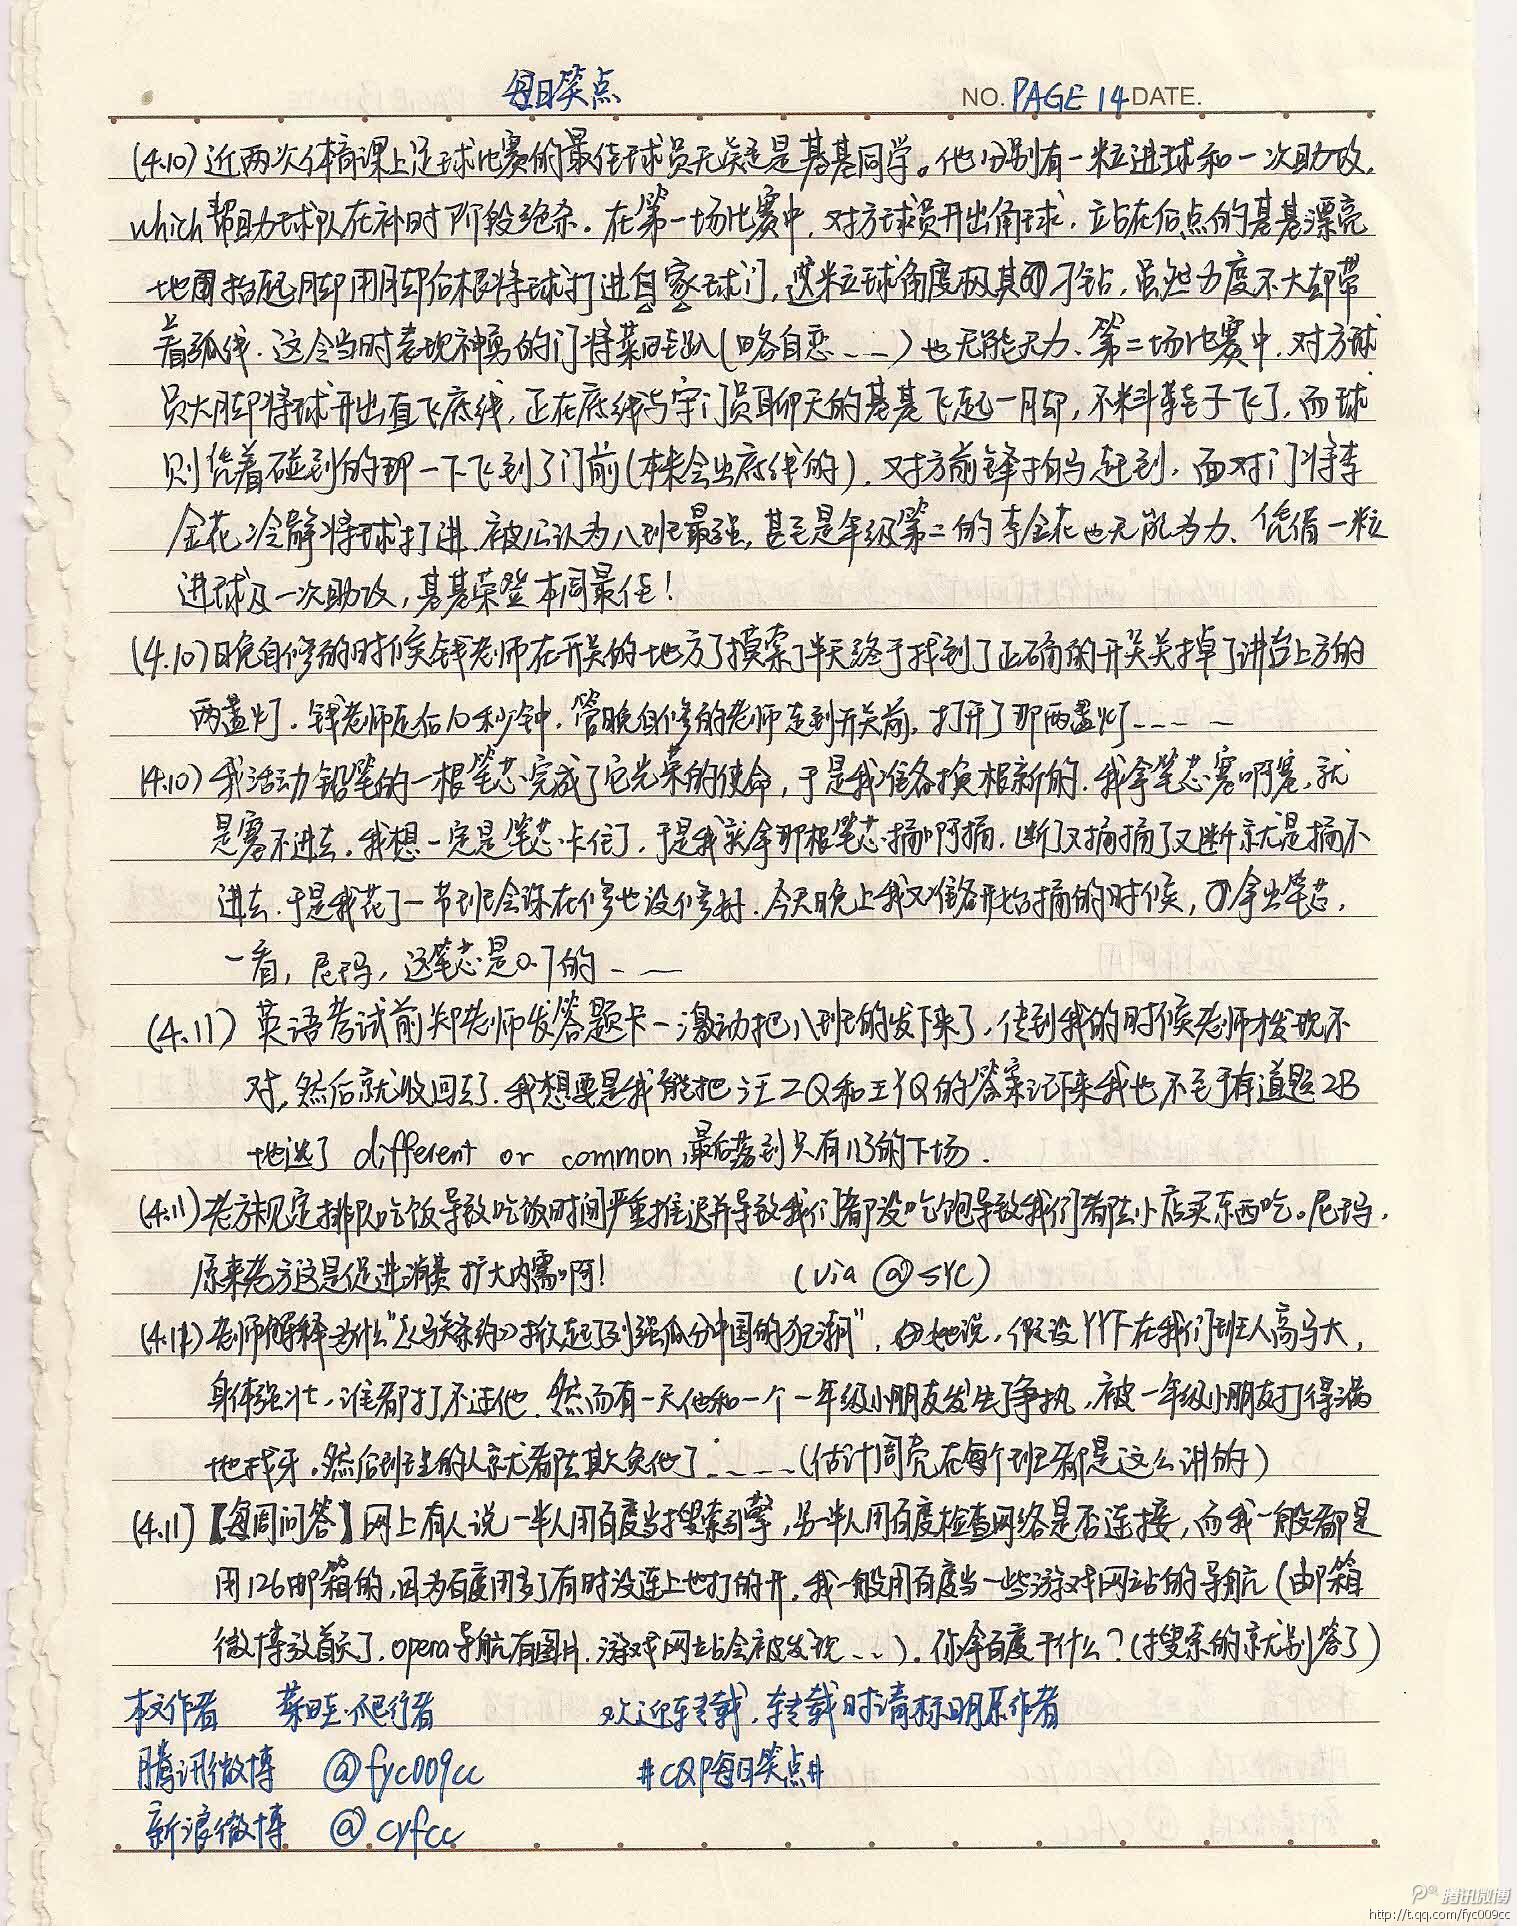 每日笑点
NO. PAGE 14 DATE.
(4.10) 近两次体育课上足球比赛的最佳球员无疑是基基同学。他分别有一粒进球和一次助攻,
which 帮助球队在补时阶段绝杀。在第一场比赛中,对方球员开出角球,立站在后点的基基漂亮
地抬起脚用脚后根将球打进自家球门,这粒球角度极其刁钻,虽然力度不大却带
着弧线.这令当时表现神勇的门将菜畦趴(略自恋......)也无能无力、第二场比赛中,对方球
员大脚将球开出直飞底线,正在底线与守门员聊天的基基飞起一脚,不料鞋子飞了,而球
则凭着碰到的那一下飞到了门前(本来会出底线的).对方前锋拍马赶到,面对门将李
金花冷静将球打进.被公认为八班最强,甚至是年级第二的李金花也无能为力、凭借一粒
进球及一次助攻,基基荣登本周最佳!
(4.10) 日晚自修的时候钱老师在开关的地方了摸索了半天终于找到了正确的开关关掉了讲台上方的
两盏灯.钱老师走后10秒钟.管晚自修的老师走到开关前,打开了那两盏灯......
(4.10) 我活动铅笔的一根笔芯完成了它光荣的使命,于是我准备换根新的.我拿笔芯塞啊塞,就
是塞不进去.我想一定是笔芯卡住了,于是我就拿那根笔芯捅啊捅,断了又捅捅了又断就是捅不
进去.于是我花了一节班会课在修也没修好.今天晚上我又准备开始捅的时候,拿出笔芯,
一看,尼玛,这笔芯是0.7的......
(4.11) 英语考试前郑老师发答题卡一激动把八班的发下来了,传到我的时候老师才发现不
对,然后就收回去了.我想要是我能把汪ZQ和王YQ的答案记下来我也不至于有道题2B
地选了 different or common,最后落到只有113的下场.
(4.11) 老方规定排队吃饭导致吃饭时间严重推迟并导致我们都没吃饱导致我们都去小店买东西吃。尼玛,
原来老方这是促进消费扩大内需啊! (via @SYC)
(4.11) 老师解释为什么“《马关条约》掀起了列强瓜分中国的狂潮”,她说,假设YYF在我们班人高马大,
身体强壮,谁都打不过他.然而有一天他和一个一年级小朋友发生了争执,被一年级小朋友打得满
地找牙.然后班里的人就都去欺负他了......(估计周壳在每个班都是这么讲的)
(4.11)【每周问答】网上有人说一半人用百度当搜索引擎,另一半人用百度检查网络是否连接,而我一般都是
用126邮箱的,因为百度用多了有时没连上也打的开.我一般用百度当一些游戏网站的导航(邮箱
微博放首页了.opera导航有图片,游戏网站会被发现...).你拿百度干什么?(搜索的就别答了)
本文作者 菜畦·爬行者 欢迎转载,转载时请标明原作者
腾讯微博 @fyc009cc #CQP每日笑点#
新浪微博 @cyfcc
腾讯微博
http://t.qq.com/fyc009cc